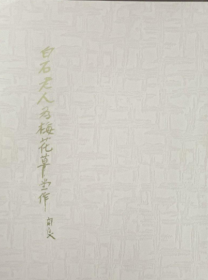 白石老人为梅花草堂作